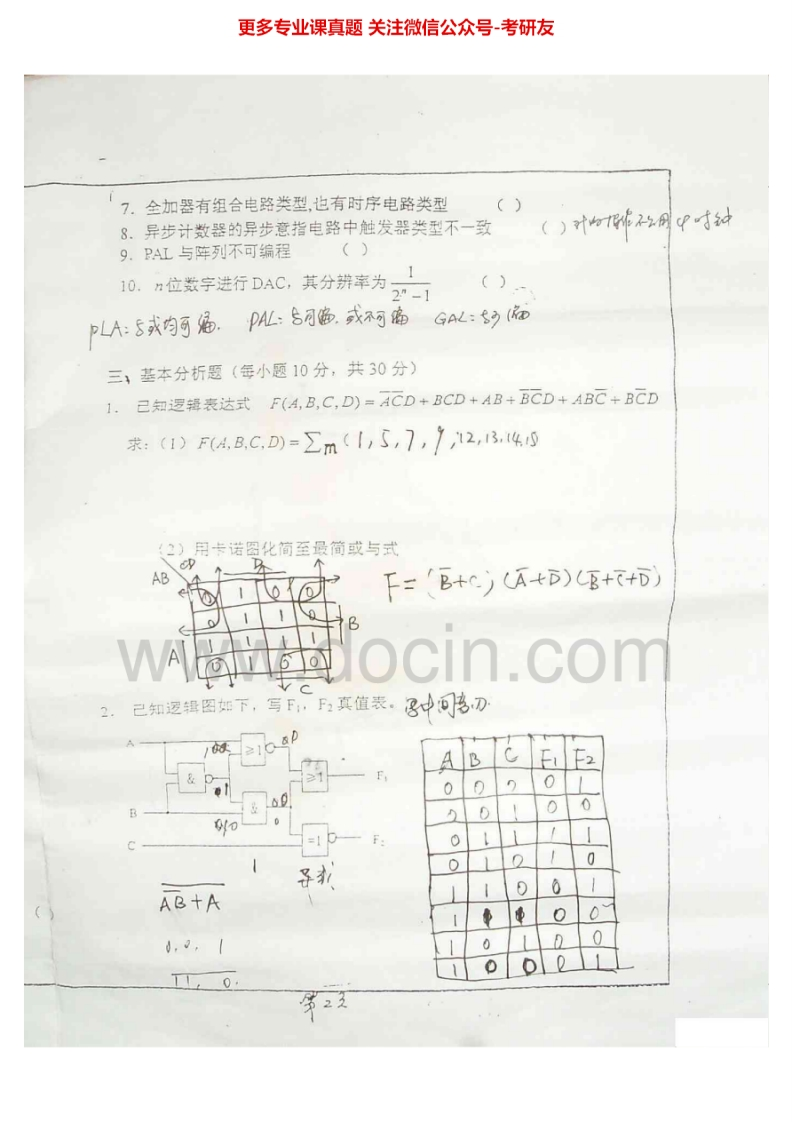 更多专业课真题 关注微信公众号-考研友
7. 全加器有组合电路类型,也有时序电路类型 ( )
8. 异步计数器的异步意指电路中触发器类型不一致 ( )
9. PAL 与阵列不可编程 ( )
10. n位数字进行DAC，其分辨率为 1/(2ⁿ-1) ( )
PLA: 与或均可编. PAL: 与可编. 或不可编 GAL: 与可编
三、基本分析题（每小题10分，共30分）
1. 已知逻辑表达式 F(A,B,C,D) = A̅C̅D + BCD + AB + B̅C̅D + ABC̅ + BC̅D
求:（1）F(A,B,C,D) = ∑m (1,5,7,9,12,13,14,15
（2）用卡诺图化简至最简或与式
AB CD D
F = (B̅+C)(A̅+D)(B̅+C̅+D̅)
0 1 0 0
0 1 1 0
B
1 1 1 1
A
0 1 0 0
C
www.docin.com
2. 已知逻辑图如下，写F₁，F₂真值表。
A
≥1
&
≥1 F₁
B
&
C =1 F₂
异或
A̅B̅+A
0, 0, 1
11, 0.
A B C F1 F2
0 0 0 0 1
0 0 1 0 0
0 1 1 1 1
0 1 0 1 0
1 1 0 0 1
1 1 1 0 0
1 0 1 0 0
1 0 0 0 1
第2页